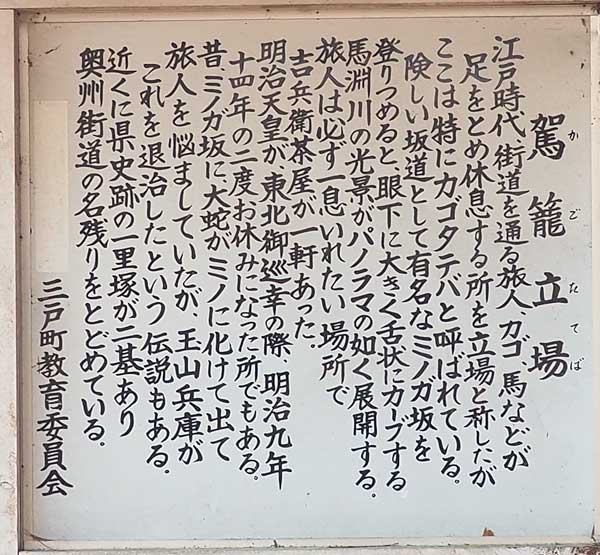 駕籠立場
かごたてば
江戸時代街道を通る旅人、カゴ、馬などが
足をとめ休息する所を立場と称したが
ここは特にカゴタテバと呼ばれている。
険しい坂道として有名なミノガ坂を
登りつめると眼下に大きく舌状にカーブする
馬淵川の光景がパノラマの如く展開する。
旅人は必ず一息いれたい場所で
吉兵衛茶屋が一軒あった。
明治天皇が東北御巡幸の際、明治九年
十四年の二度お休みになった所でもある。
昔ミノガ坂に大蛇がミノに化けて出て
旅人を悩ましていたが、玉山兵庫が
これを退治したという伝説もある。
近くに県史跡の一里塚が二基あり
奥州街道の名残りをとどめている。
三戸町教育委員会